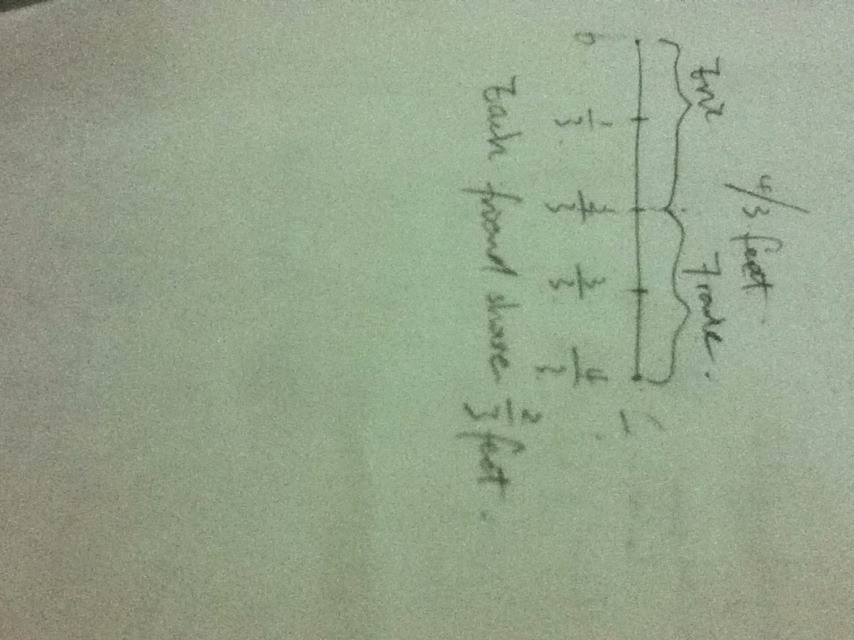 4/3 feet
Eric
Trace.
0 1/3 2/3 3/3 4/3
Each friend share 2/3 feet.